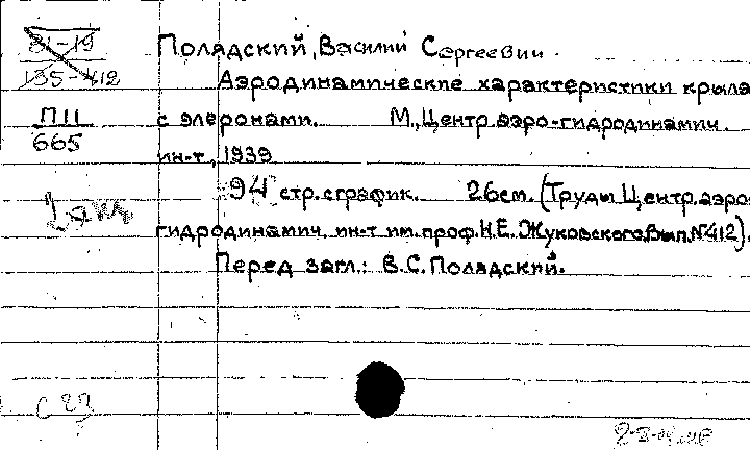 81-19
135-412
П11
665
Полядский, Василий Сергеевич.
Аэродинамические характеристики крыла
с элеронами. М., Центр. аэро-гидродинамич.
ин-т, 1939
94 стр. с график. 26 см. (Труды Центр. аэро-
гидродинамич. ин-т им. проф. Н.Е. Жуковского. Вып. №412).
Перед загл.: В.С. Полядский.
1 экз
С 23